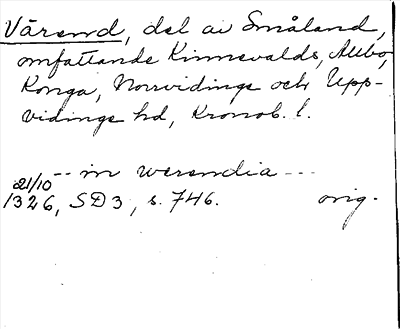 Värend, del av Småland,
omfattande Kinnevalds, Allbo,
Konga, Norrvidinge och Upp-
vidinge hd, Kronob. l.
-- in werendia ---
21/10
1326, SD 3, s. 746. orig.